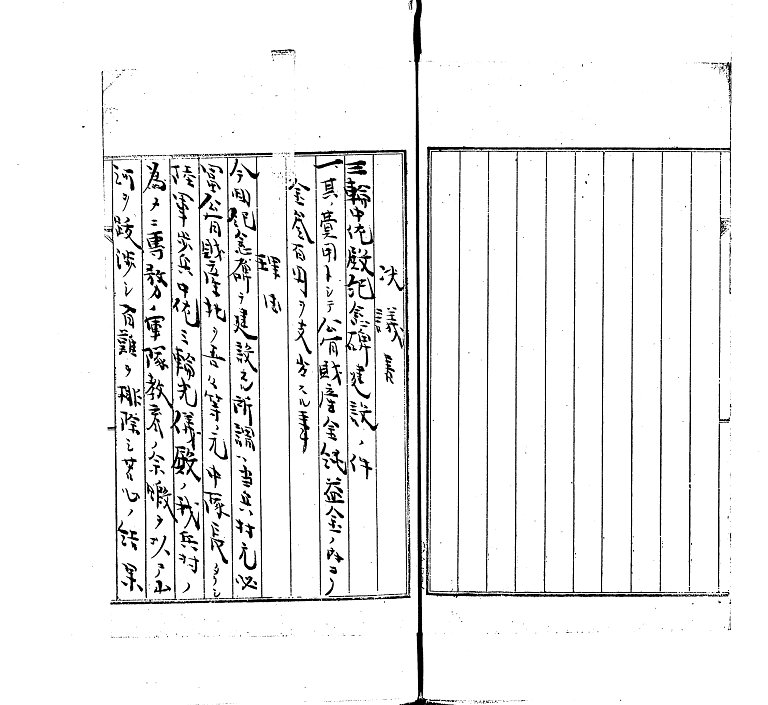 決議書
三輪中佐殿記念碑建設ノ件
一、其ノ費用トシテ公有財産金純益金ノ内ヨリ
金壱百円ヲ支出スル事
理由
今回記念碑ヲ建設スル所謂ハ当兵村元必
富公有財産地ヲ吾々等ノ元中隊長タラシ
陸軍歩兵中佐三輪光儀殿ノ我兵村ノ
為メニ専務ノ軍隊教育ノ余暇ヲ以テ山
河ヲ跋渉シ百難ヲ排除シ苦心ノ結果